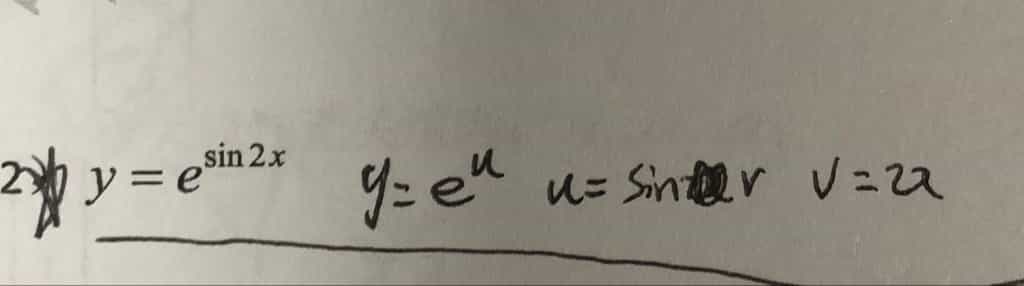 2) y = e^{sin 2x} y = e^u u = sin v v = 2x